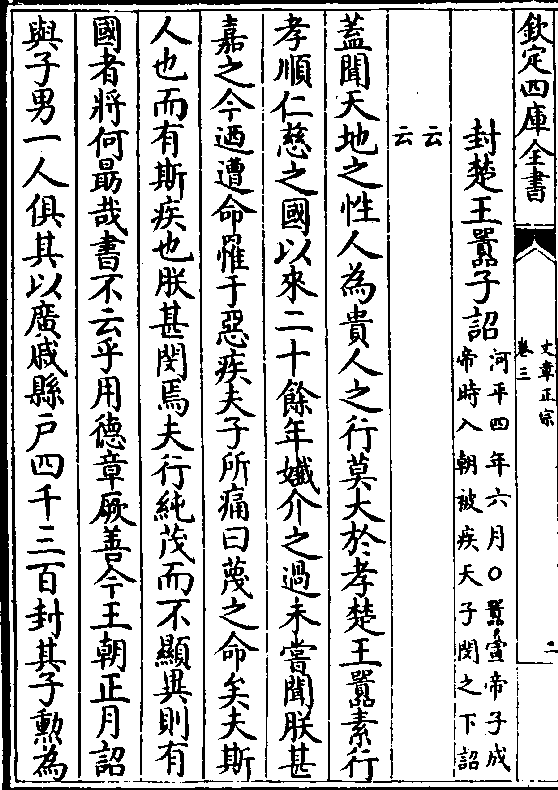 欽定四庫全書
文章正宗
卷三
二
封楚王囂子詔
河平四年六月○囂宣帝子成
帝時入朝被疾天子閔之下詔
云
云
蓋聞天地之性人為貴人之行莫大於孝楚王囂素行
孝順仁慈之國以來二十餘年孅介之過未嘗聞朕甚
嘉之今迺遭命罹于惡疾夫子所痛曰蔑之命矣夫斯
人也而有斯疾也朕甚閔焉夫行純茂而不顯異則有
國者將何勗哉書不云乎用德章厥善今王朝正月詔
與子男一人俱其以廣戚縣户四千三百封其子勲為